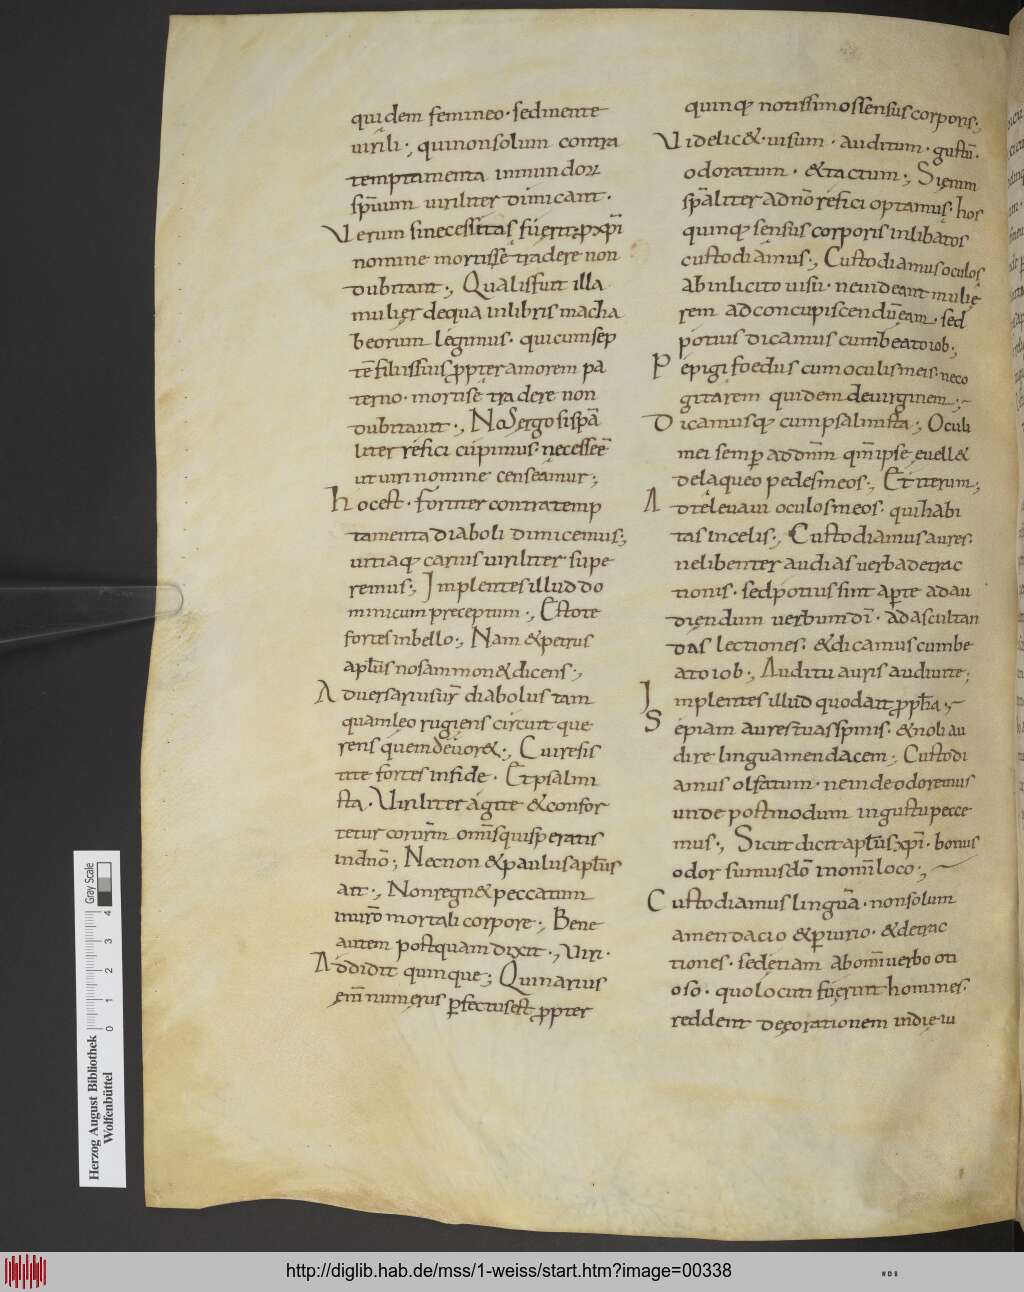 quidem femineo· sed mente
uirili·, qui non solum contra
temptamenta inmundorꝝ
spr̄ituum uiriliter dimicant·
Verum si necessitas fuerit p xp̄i
nomine morti se tradere non
dubitant·, Qualis fuit illa
mulier de qua in libris macha
beorum legimus· qui cum sep
tē filiis suis ꝓpter amorem pa
terno· morti sę tradere non
dubitauit·, Nos ergo si spā
liter refici cupimus· necesse ē
ut uiri nomine censeamur·,
hoc est· fortiter contra temp
tamenta diaboli dimicemus·,
uitiaq; carnis uiriliter supe
remus·, Implentes illud do
minicum preceptum·, Estote
fortes in bello·, Nam & petrus
apl̄us nos ammon& dicens·,
Aduersarius ur̄ diabolus tam
quam leo rugiens circuit que
rens quem deuor&·, Cui resis
tite fortes in fide· Et psalmi
sta· Uiriliter agite & confor
tetur cor ur̄m om̄s qui speratis
in dn̄o·, Necnon & paulus apl̄us
ait·, Non regn& peccatum
in ur̄o mortali corpore·, Bene
autem postquam dixit·, Uiri·
Addidit quinque·, Quinarius
eni̅ numerus ꝑfectus est ꝓpter
quinq; notissimos sensus corporis·,
Videlic& uisum· auditum· gustū·
odoratum· & tactum·, Si enim
spāliter a dn̄o refici optamus· hos
quinq; sensus corporis inlibatos
custodiamus·, Custodiamus oculos
ab inlicito uisu· ne uideant mulie
rem ad concupiscendū eam· sed
potius dicamus cum beato iob·,
Pepigi foedus cum oculis meis· ne co
gitarem quidem de uirginem·,
Dicamusq; cum psalmista·, Oculi
mei semp̄ ad dn̄m qm̄ ipse euell&
de laqueo pedes meos·, Et iterum·,
Ad te leuaui oculos meos· qui habi
tas in celis·, Custodiamus aures·
ne libenter audias uerba detrac
tionis· sed potius sint aꝑte ad au
diendum uerbum dī· ad ascultan
das lectiones· & dicamus cum be
ato iob·, Auditu auris audiui te·,
Implentes illud quod ait ꝓph̄a·,
Sepiam aures tuas spinis· & noli au
dire linguam endacem·, Custodi
amus olfatum· ne inde odoremus
unde postmodum in gustu pecce
mus·, Sicut dicit apl̄us xp̄i· bonus
odor sumus dō in omni loco·,
Custodiamus linguā· non solum
a mendacio & ꝑiurio· & detrac
tiones· sed etiam ab om̄i uerbo oti
oso· quo locuti fuerint homines·
reddent de eo rationem in die iu
Herzog August Bibliothek
Wolfenbüttel
0 1 2 3 4
Gray Scale
http://diglib.hab.de/mss/1-weiss/start.htm?image=00338